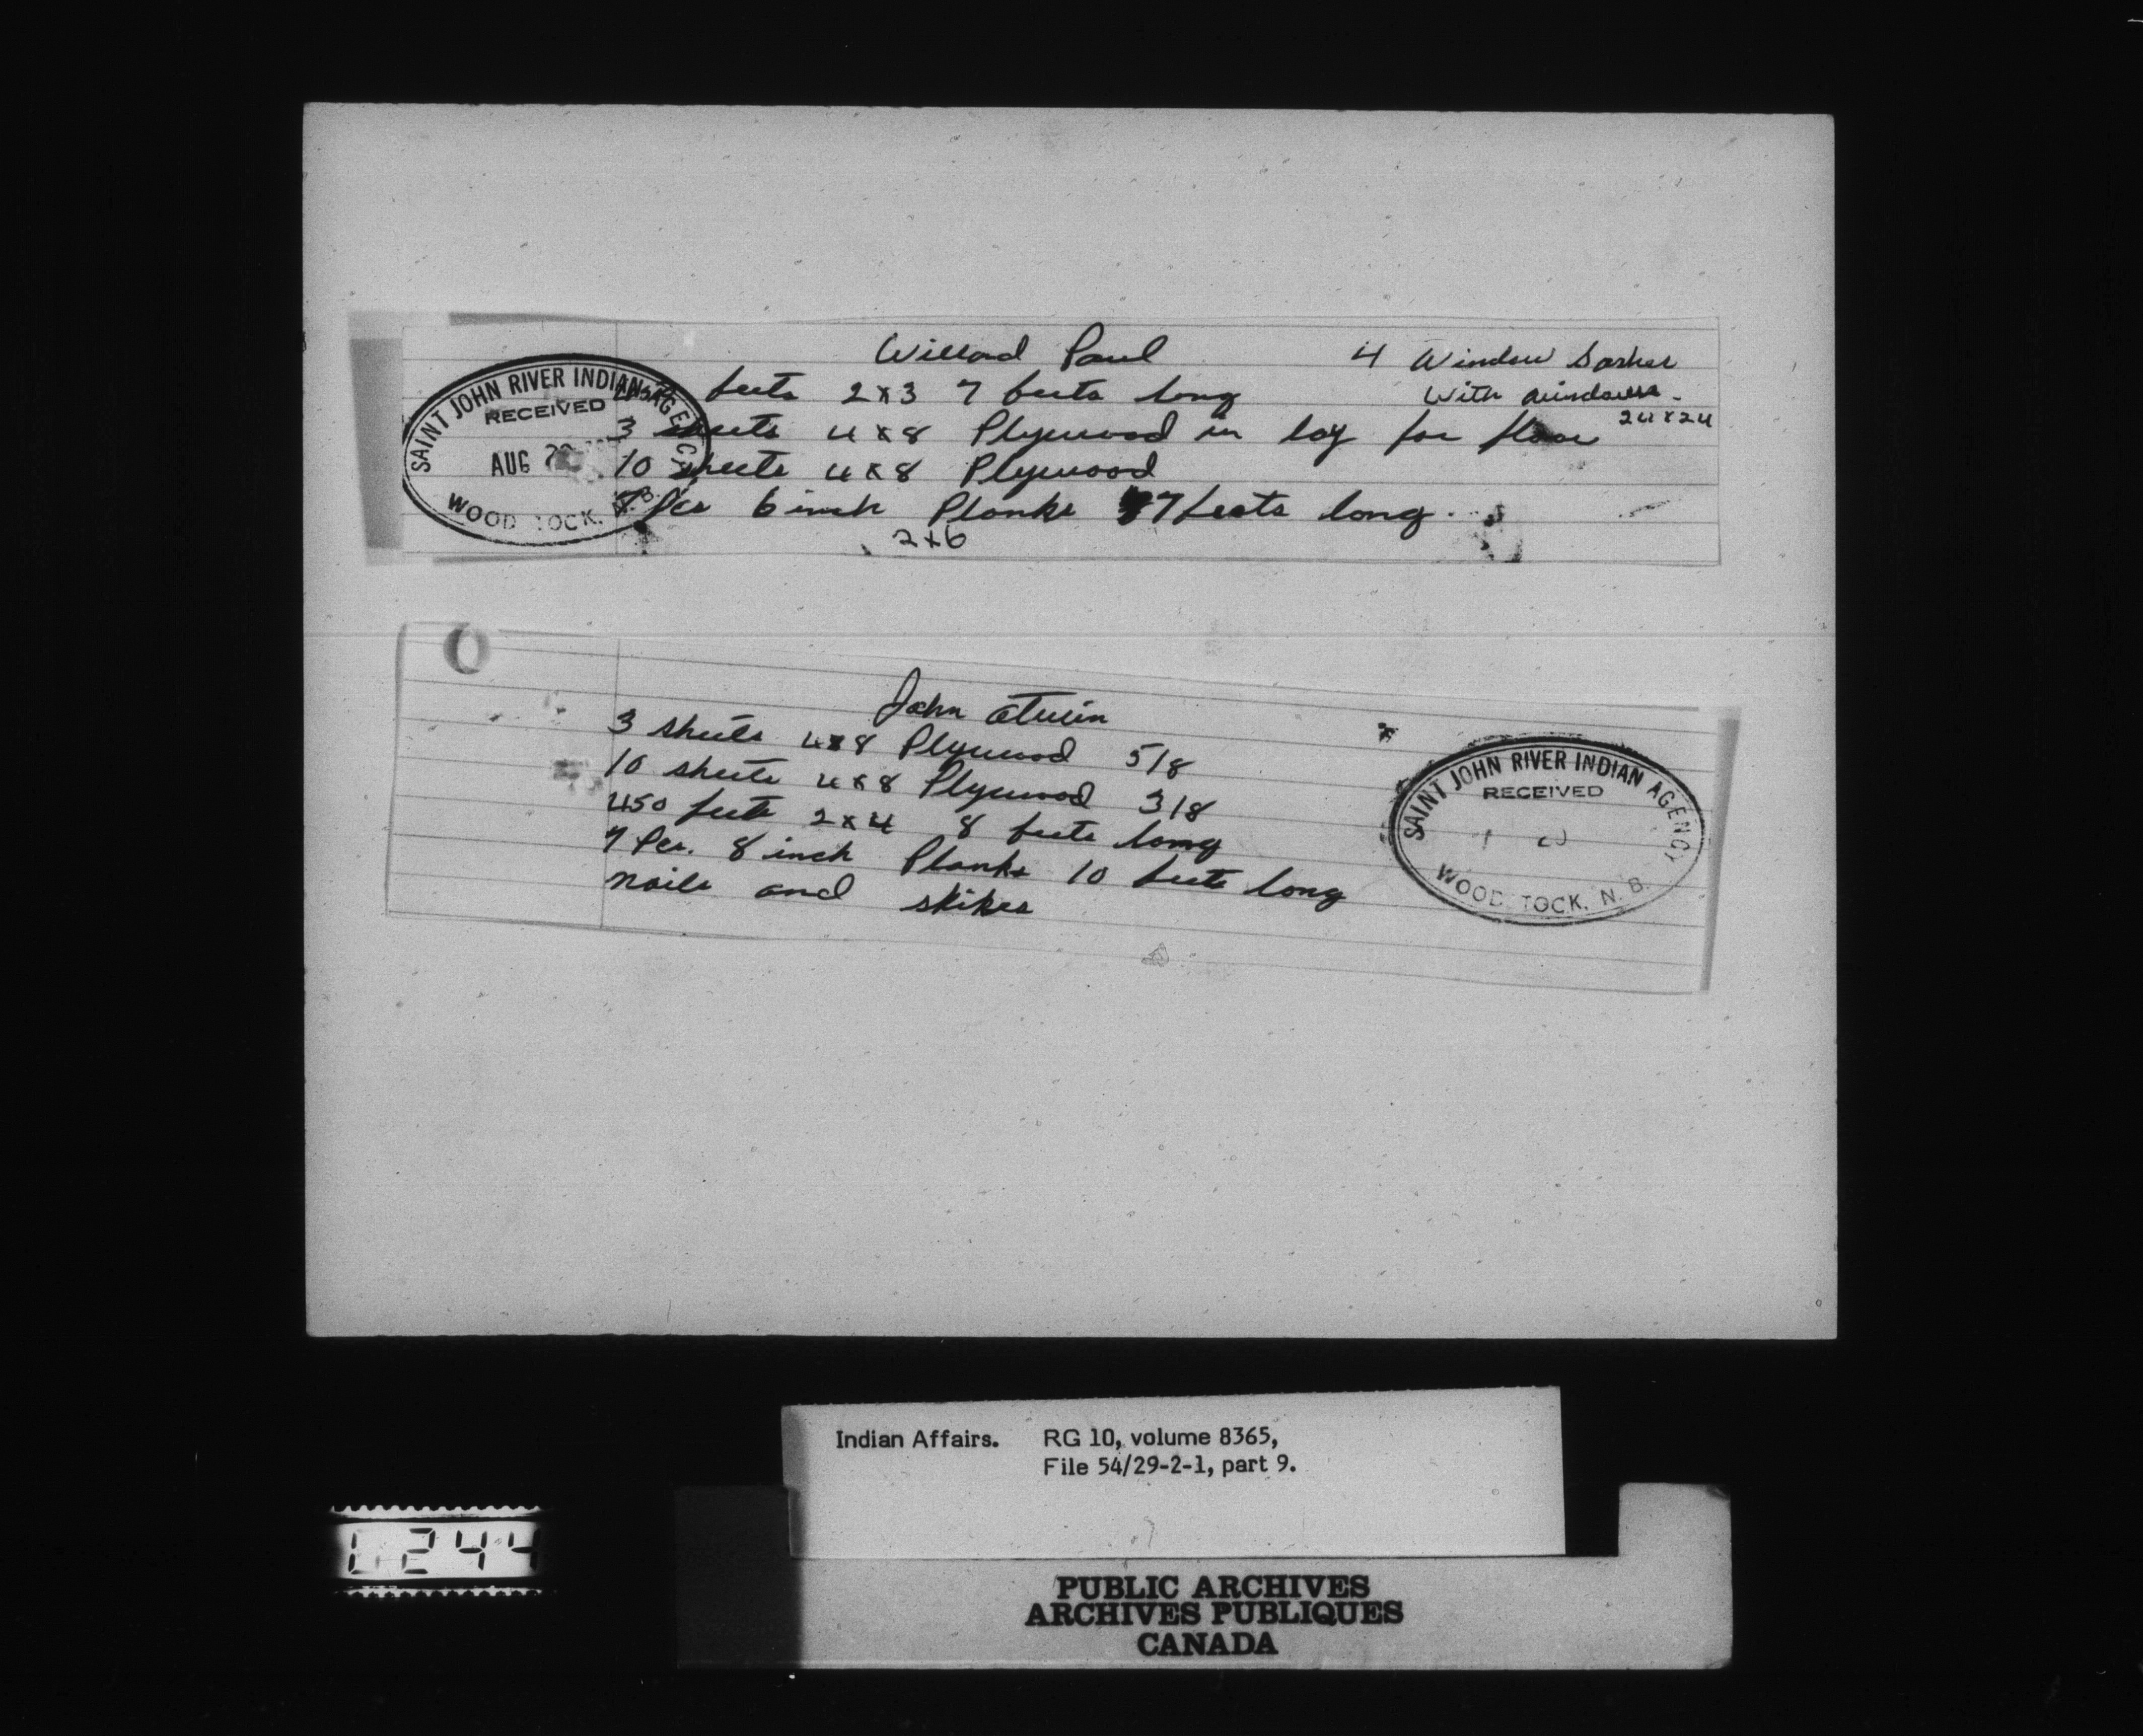 Willard Paul
4 Window Sashes
With windows.
24x24
feets 2x3 7 feets long
3 sheets 4x8 Plywood in lay for floor
10 sheets 4x8 Plywood
7 Pcs 6 inch Planks 7 feets long.
2x6
SAINT JOHN RIVER INDIAN AGENCY
RECEIVED
AUG
WOOD TOCK, N.B.
John Atwin
3 sheets 4x8 Plywood 5/8
10 sheets 4x8 Plywood 3/8
450 feets 2x4 8 feets long
7 Pcs. 8 inch Planks 10 feets long
nails and skikes
SAINT JOHN RIVER INDIAN AGENCY
RECEIVED
WOOD TOCK, N. B.
Indian Affairs. RG 10, volume 8365,
File 54/29-2-1, part 9.
244
PUBLIC ARCHIVES
ARCHIVES PUBLIQUES
CANADA